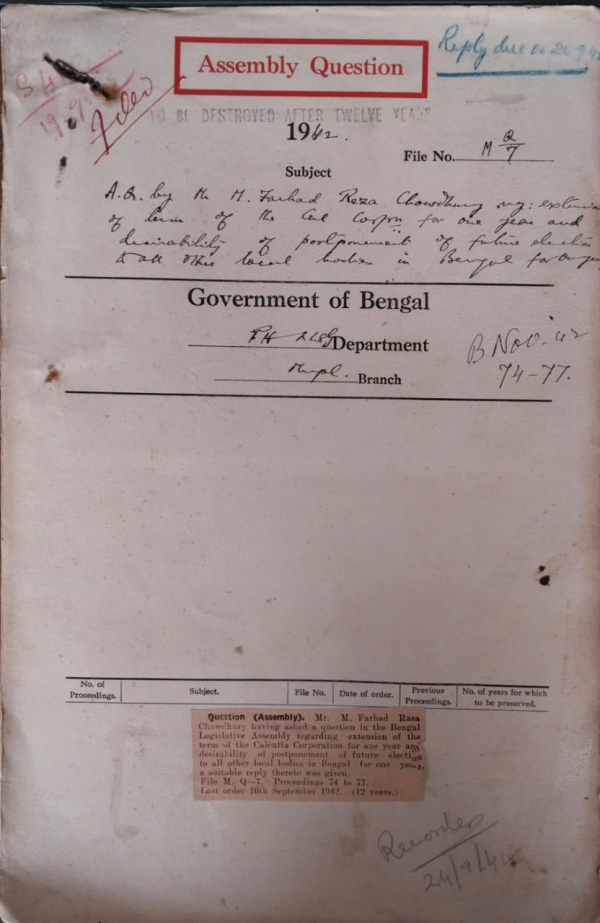 Reply due on 20.9.42
Assembly Question
S H
19.9.42
Filed
TO BE DESTROYED AFTER TWELVE YEARS
1942.
File No. M Q/7
Subject
A.Q. by Mr M. Farhad Reza Chowdhury reg: extension
of term of the Cal Corpn for one year and
desirability of postponement of future election
to all other local bodies in Bengal for one year
Government of Bengal
PH & LSG Department
Mupl. Branch
B Nov. 42
74-77.
No. of Proceedings.
Subject.
File No.
Date of order.
Previous Proceedings.
No. of years for which to be preserved.
Question (Assembly). Mr. M. Farhad Raza
Chowdhury having asked a question in the Bengal
Legislative Assembly regarding extension of the
term of the Calcutta Corporation for one year and
desirability of postponement of future election
to all other local bodies in Bengal for one year,
a suitable reply thereto was given.
File M. Q—7. Proceedings 74 to 77.
Last order 16th September 1942. (12 years.)
Recorded
24/9/42